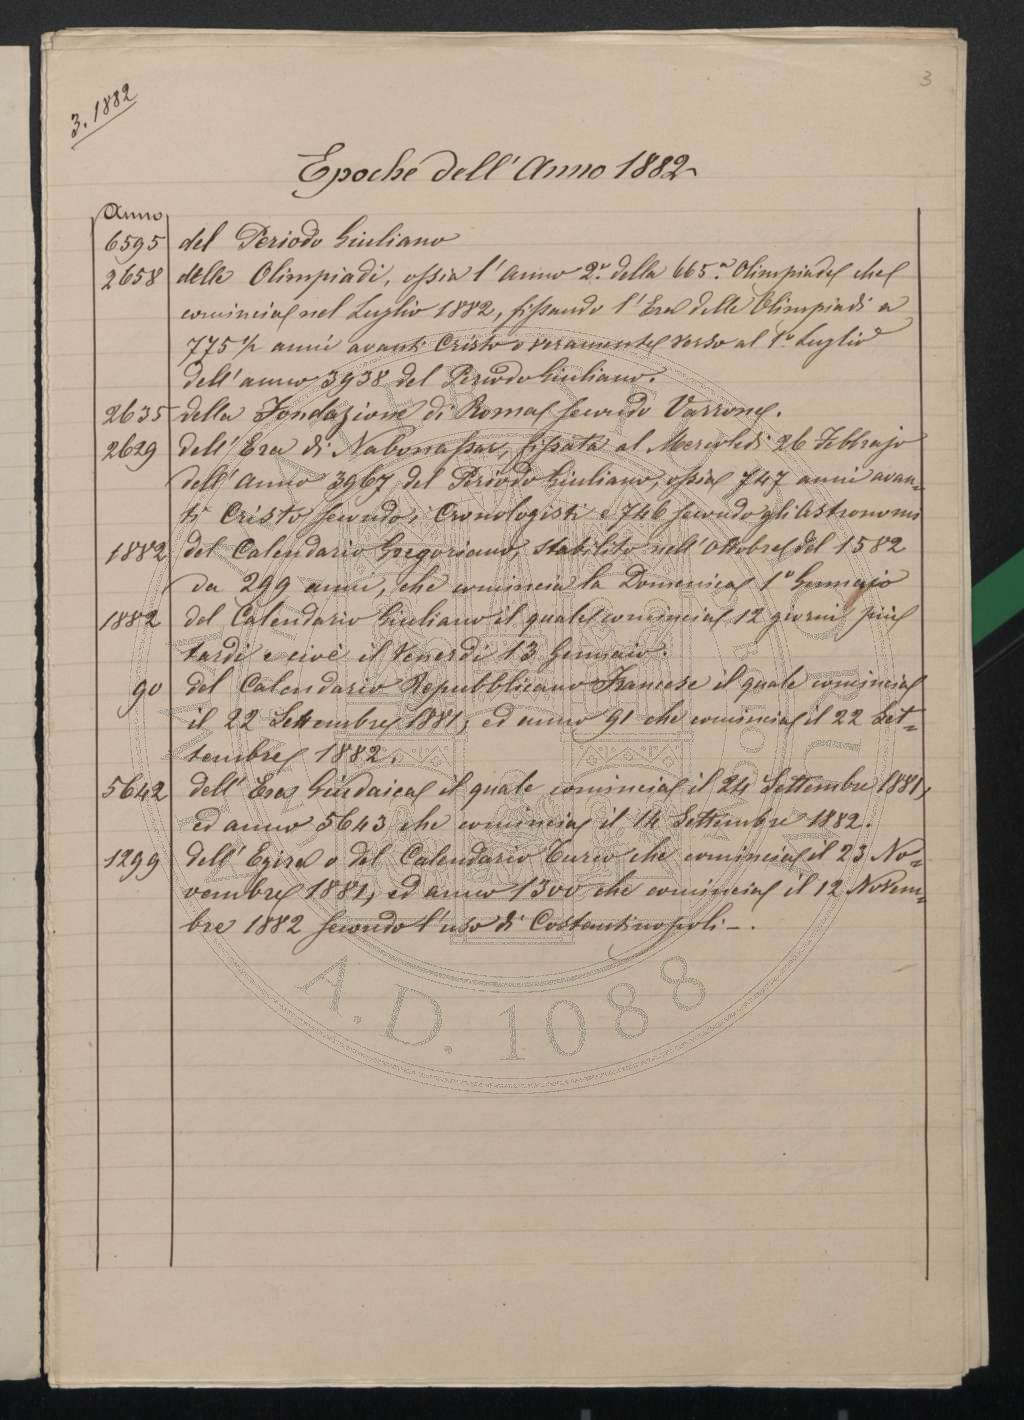 3
3. 1882
Epoche dell'Anno 1882
Anno
6595 del Periodo Giuliano
2658 delle Olimpiadi, ossia l'anno 2.º della 665.ª Olimpiade che
comincia nel Luglio 1882, fissando l'Era delle Olimpiadi a
775 ½ anni avanti Cristo o veramente verso al 1º Luglio
dell'anno 3938 del Periodo Giuliano.
2635 della Fondazione di Roma secondo Varrone.
2629 dell'Era di Nabonassar, fissata al Mercoledi 26 Febbrajo
dell'anno 3967 del Periodo Giuliano, ossia 747 anni avan=
ti Cristo secondo i Cronologisti e 746 secondo gli Astronomi
1882 del Calendario Gregoriano, stabilito nell'Ottobre del 1582
da 299 anni, che comincia la Domenica 1º Gennajo
1882 del Calendario Giuliano il quale comincia 12 giorni più
tardi e cioè il Venerdi 13 Gennaio.
90 del Calendario Repubblicano Francese il quale comincia
il 22 Settembre 1881, ed anno 91 che comincia il 22 Set=
tembre 1882.
5642 dell'Era Giudaica il quale comincia il 24 Settembre 1881,
ed anno 5643 che comincia il 14 Settembre 1882.
1299 dell'Egira o del Calendario Turco che comincia il 23 No=
vembre 1881, ed anno 1300 che comincia il 12 Novem=
bre 1882 secondo l'uso di Costantinopoli –.
A.D. 1088